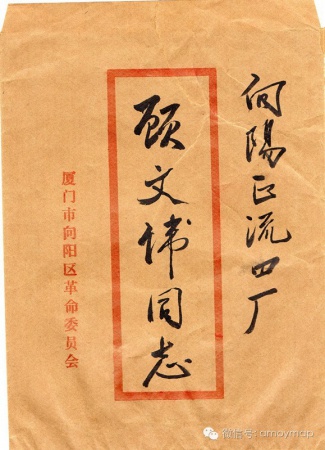 向陽正流四厂
顾文偉同志
厦门市向阳区革命委员会
微信号: amoymap